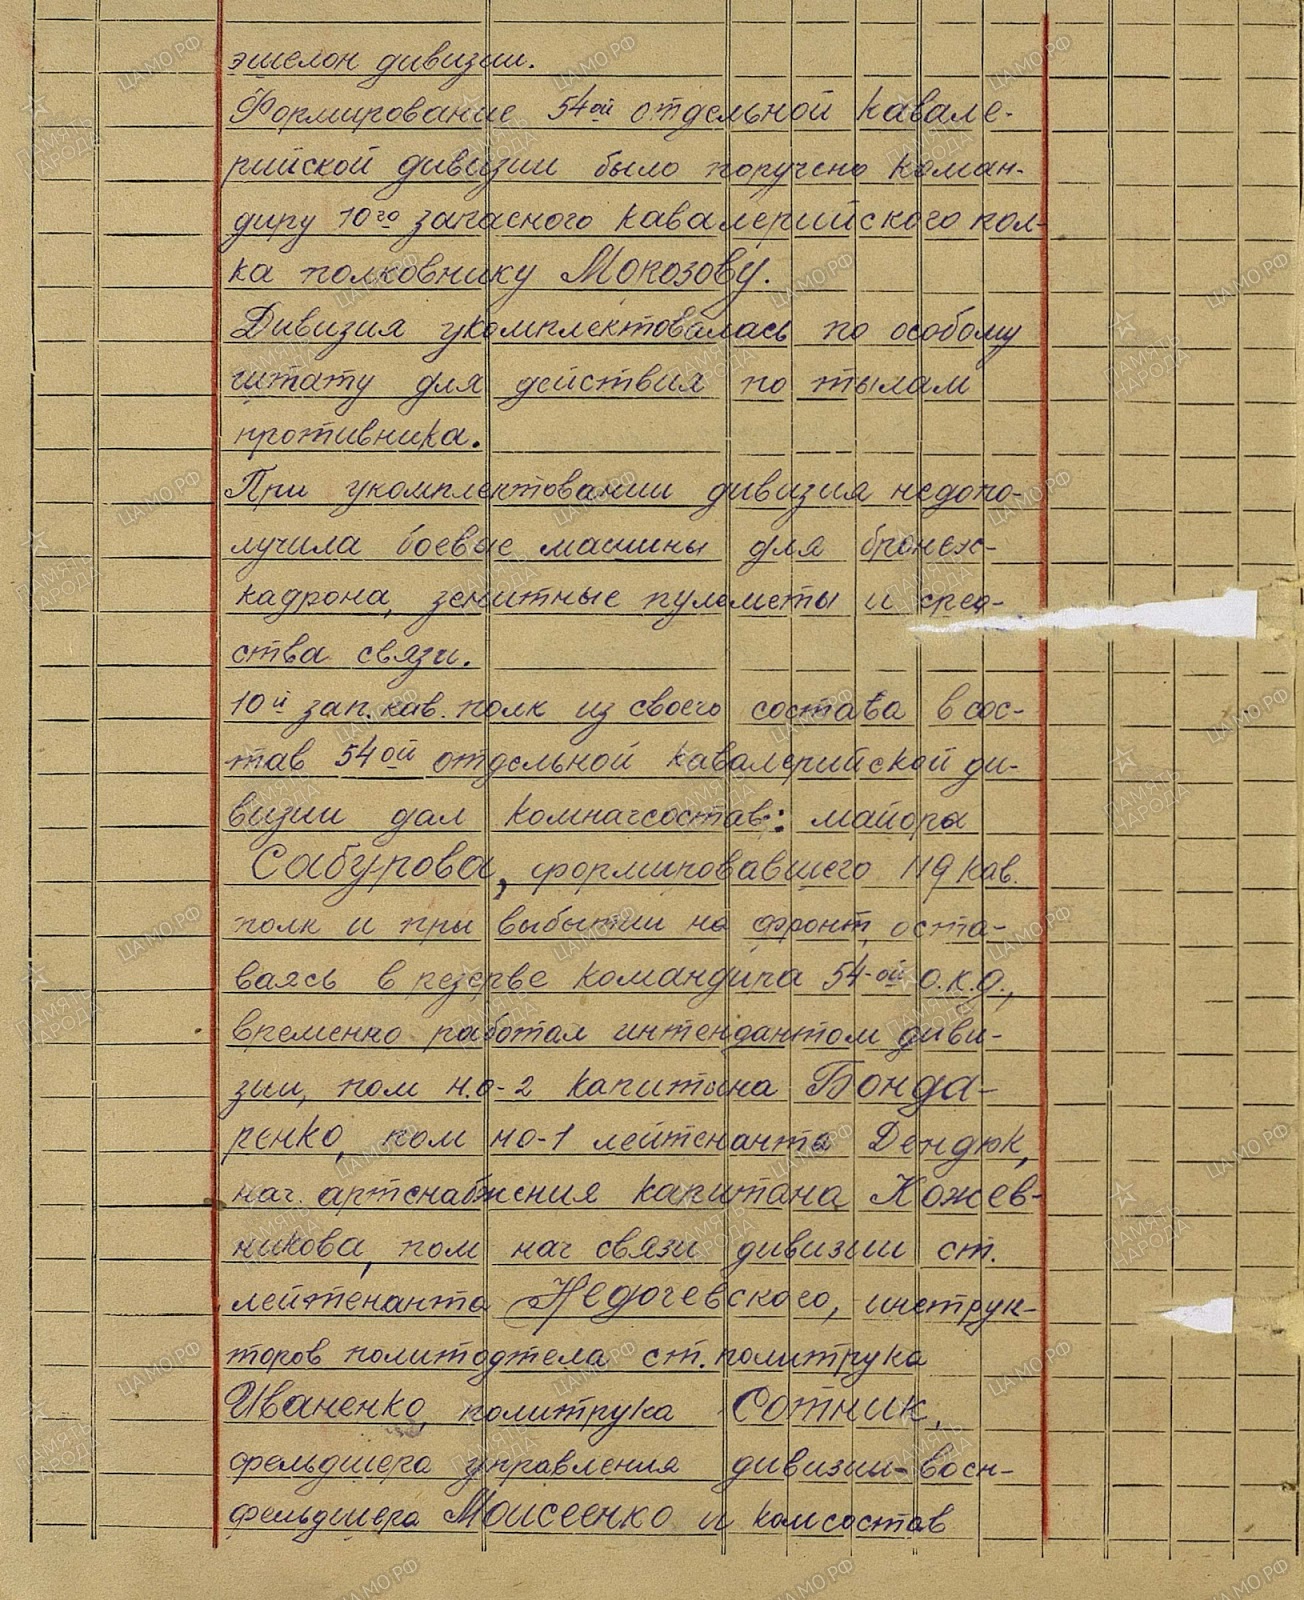 эшелон дивизии.
Формирование 54ой отдельной кавале-
рийской дивизии было поручено коман-
диру 10го запасного кавалерийского пол-
ка полковнику Мокозову.
Дивизия укомплектовалась по особому
штату для действия по тылам
противника.
При укомплектовании дивизия недопо-
лучила боевые машины для бронэс-
кадрона, зенитные пулеметы и сред-
ства связи.
10й зап. кав. полк из своего состава в сос-
тав 54ой отдельной кавалерийской ди-
визии дал комначсостав: майора
Сабурова, формировавшего 119 кав.
полк и при выбытии на фронт, оста-
ваясь в резерве командира 54-ой о.к.д.,
временно работал интендантом диви-
зии, пом н.о-2 капитана Бонда-
ренко, пом но-1 лейтенанта Дендюк,
нач. артснабжения капитана Кожев-
никова, пом нач связи дивизии ст.
лейтенанта Недочевского, инструк-
торов политотдела ст. политрука
Иваненко, политрука Сотник,
фельдшера управления дивизии-воен-
фельдшера Моисеенко и комсостав
ЦАМО.РФ
ПАМЯТЬ НАРОДА